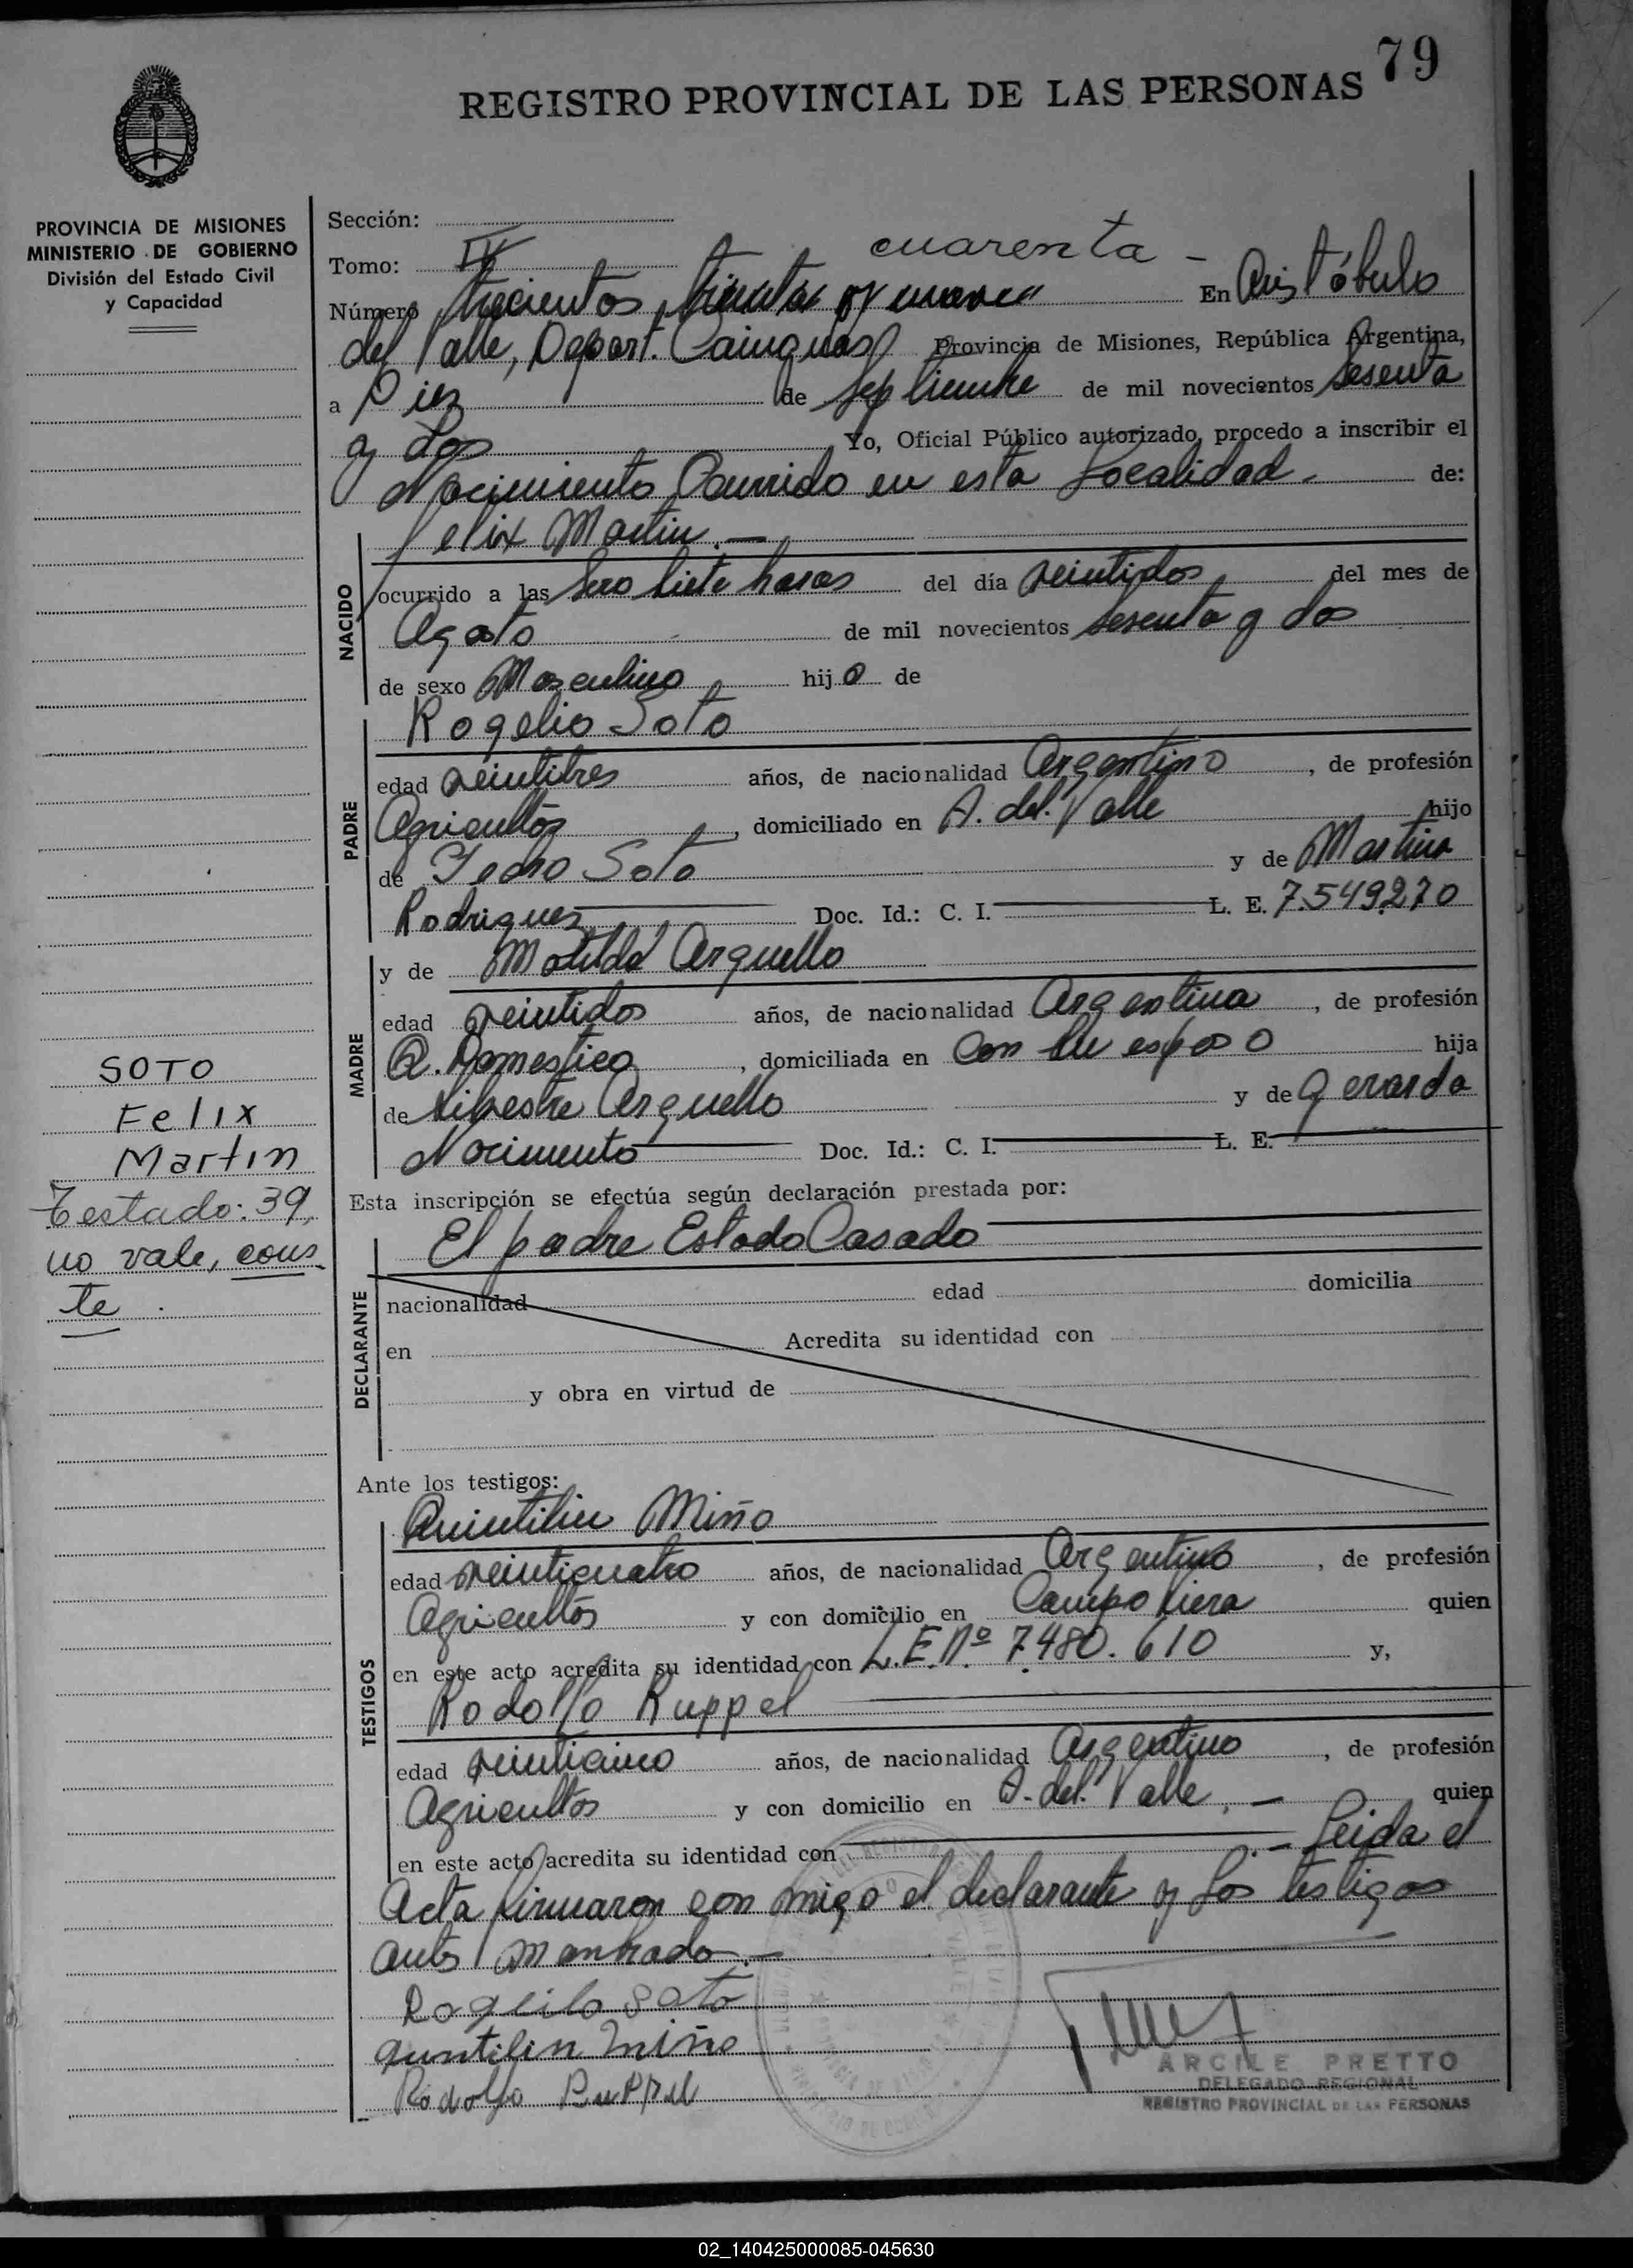 79
REGISTRO PROVINCIAL DE LAS PERSONAS
PROVINCIA DE MISIONES
MINISTERIO DE GOBIERNO
División del Estado Civil
y Capacidad
Sección:
Tomo: IV
cuarenta -
Número trecientos, treinta y nueve En Aristóbulo
del Valle, Depart. Cainguas Provincia de Misiones, República Argentina,
a Diez de Septiembre de mil novecientos sesenta
y dos Yo, Oficial Público autorizado, procedo a inscribir el
Nacimiento Ocurrido en esta Localidad.- de:
NACIDO
Felix Martin.-
ocurrido a las Sero siete horas del día veintidos del mes de
Agosto de mil novecientos sesenta y dos
de sexo Masculino hijo de
PADRE
Rogelio Soto
edad veintitres años, de nacionalidad Argentino, de profesión
Agricultor, domiciliado en A. del. Valle hijo
de Pedro Soto y de Martina
Rodriguez Doc. Id.: C. I. L. E. 7.549.270
MADRE
y de Matilda Arguello
edad veintidos años, de nacionalidad Argentina, de profesión
Q. Domestico, domiciliada en Con su esposo hija
de Silvestre Arguello y de Gerarda
Nacimento Doc. Id.: C. I. L. E.
SOTO
Felix
Martin
Testado: 39,
no vale, cons
te.
Esta inscripción se efectúa según declaración prestada por:
DECLARANTE
El padre Estado Casado
nacionalidad edad domicilia
en Acredita su identidad con
y obra en virtud de
Ante los testigos:
TESTIGOS
Quintilin Miño
edad veinticuatro años, de nacionalidad Argentino, de profesión
Agricultor y con domicilio en Campo Viera quien
en este acto acredita su identidad con L.E.Nº 7.480.610 y,
Rodolfo Ruppel
edad veinticinco años, de nacionalidad Argentino, de profesión
Agricultor y con domicilio en A. del. Valle.- quien
en este acto acredita su identidad con .- Leida el
Acta firmaron con migo el declarante y los testigos
antes
Rogelilo Soto
quntilin Miño
Rodolfo Ruppel
ARCILE PRETTO
DELEGADO REGIONAL
REGISTRO PROVINCIAL DE LAS PERSONAS
02_140425000085-045630